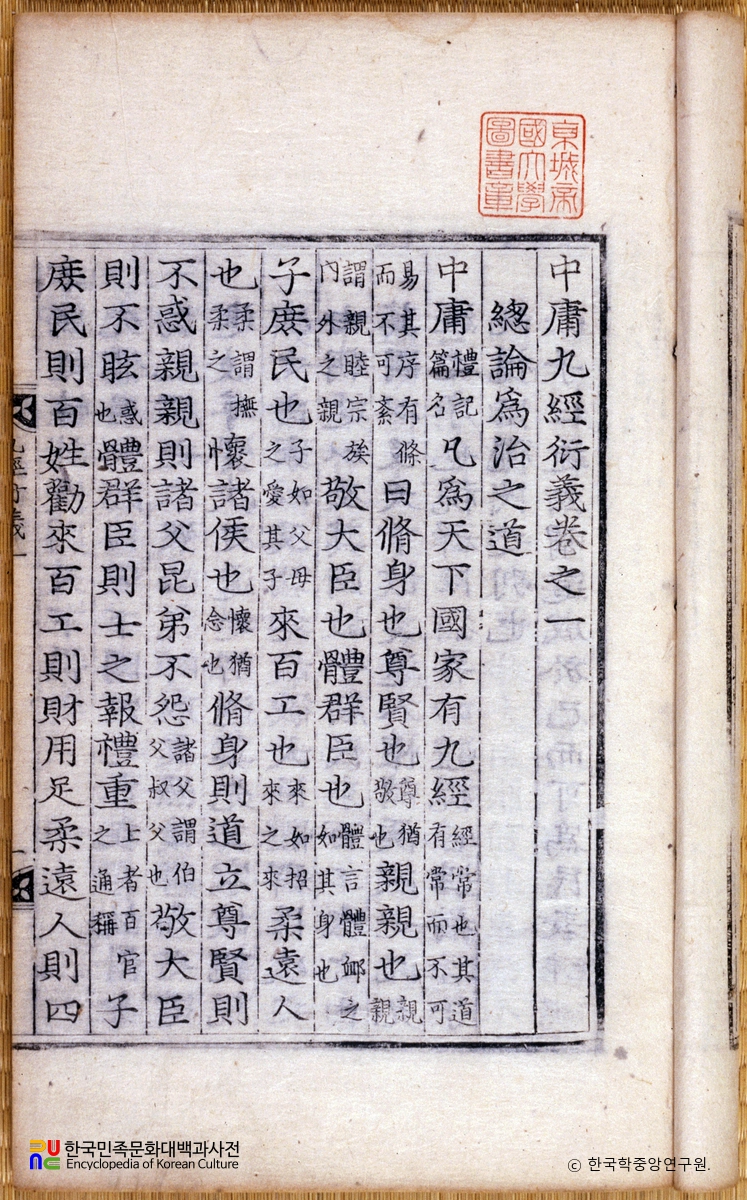 京城帝
國大學
圖書章
中庸九經衍義卷之一
總論爲治之道
中庸禮記篇名凡爲天下國家有九經經常也其道有常而不可
易其序有條而不可紊曰脩身也尊賢也尊猶敬也親親也親親
謂親睦宗族內外之親敬大臣也體群臣也體言體之如其身也
子庶民也子如父母之愛其子來百工也來如招來之來柔遠人
也柔謂撫柔之懷諸侯也懷猶念也脩身則道立尊賢則
不惑親親則諸父昆弟不怨諸父謂伯父叔父也敬大臣
則不眩惑也體群臣則士之報禮重上者百官之通稱子
庶民則百姓勸來百工則財用足柔遠人則四
九經衍義一
한국민족문화대백과사전
Encyclopedia of Korean Culture
© 한국학중앙연구원.